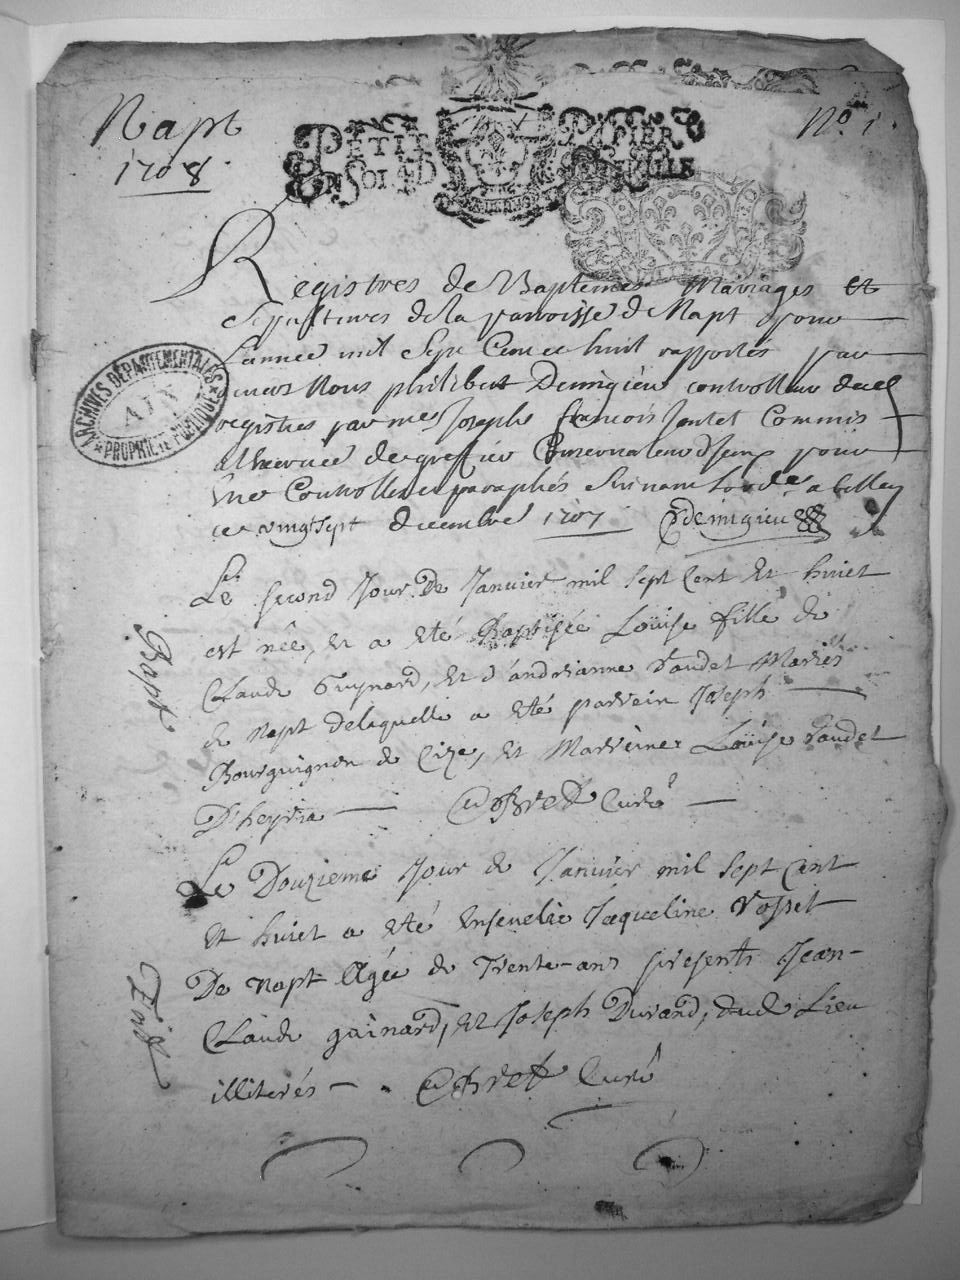 Napt
1708.
PETIT PAPIER
UN SOL LA FEUILLE
No. 1.
Registres de Baptemes Mariages Et
Sepultures de la parroisse de Napt pour
Lannee mil Sept Cent et huit rapportés par
nous philibert Demigieu controlleur desd
registres par me Joseph francois Commis
a lexercice de greffier Conservateur d'Iceux pour
Controlle et paraphés a belley
ce vingt sept decembre 1707 Demigieu
Le second Jour De Janvier mil sept Cent Et huict
est née, Et a eté Baptisée Loüise fille de
Claude Guynard, Et d'andrianne Vaudet Mariés
de Napt delaquelle a eté parrein Joseph
Bourguignon de Cize, et Marreine Loüise Vaudet
D'heyria Curé
Bapt
Le Douzieme Jour de Janvier mil sept Cent
Et huict a eté Ensevelie Jacqueline Rosset
De Napt Agée de Trente-ans presents Jean-
Claude guinard, Et Joseph Durand, dud Lieu
illiterés Curé
ARCHIVES DÉPARTEMENTALES
AIN
PROPRIÉTÉ PUBLIQUE